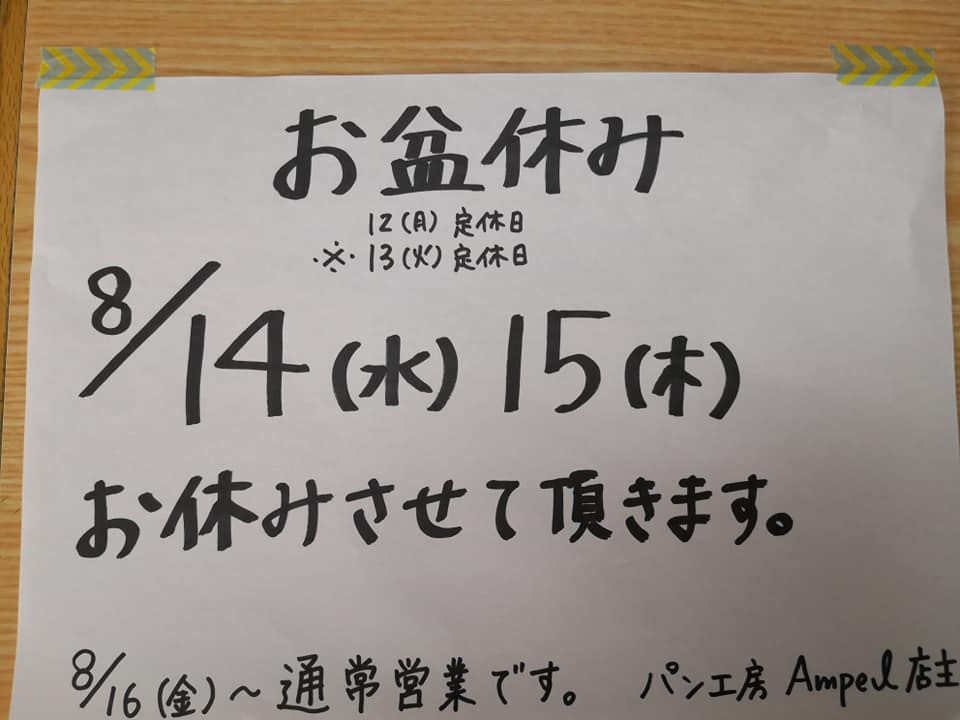 お盆休み
12(月)定休日
※13(火)定休日
8/14(水)15(木)
お休みさせて頂きます。
8/16(金)～通常営業です。 パン工房 Ampel店主